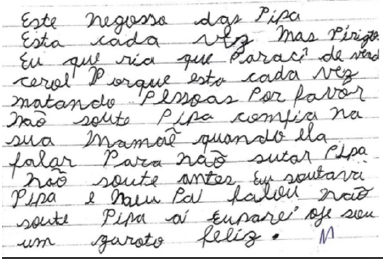 Este negosso das Pipa
Esta cada vez mas Pirigo.
Eu que ria que Paraci de vend
cerol Porque esta cada vez
matando Pessoas Por favor
não soute Pipa comfia na
sua Mamãe quando ela
falar Para não sutar Pipa
não soute antes Eu soutava
Pipa e meu Pai falou não
soute Pipa ai Euparei oje sou
um garoto feliz.